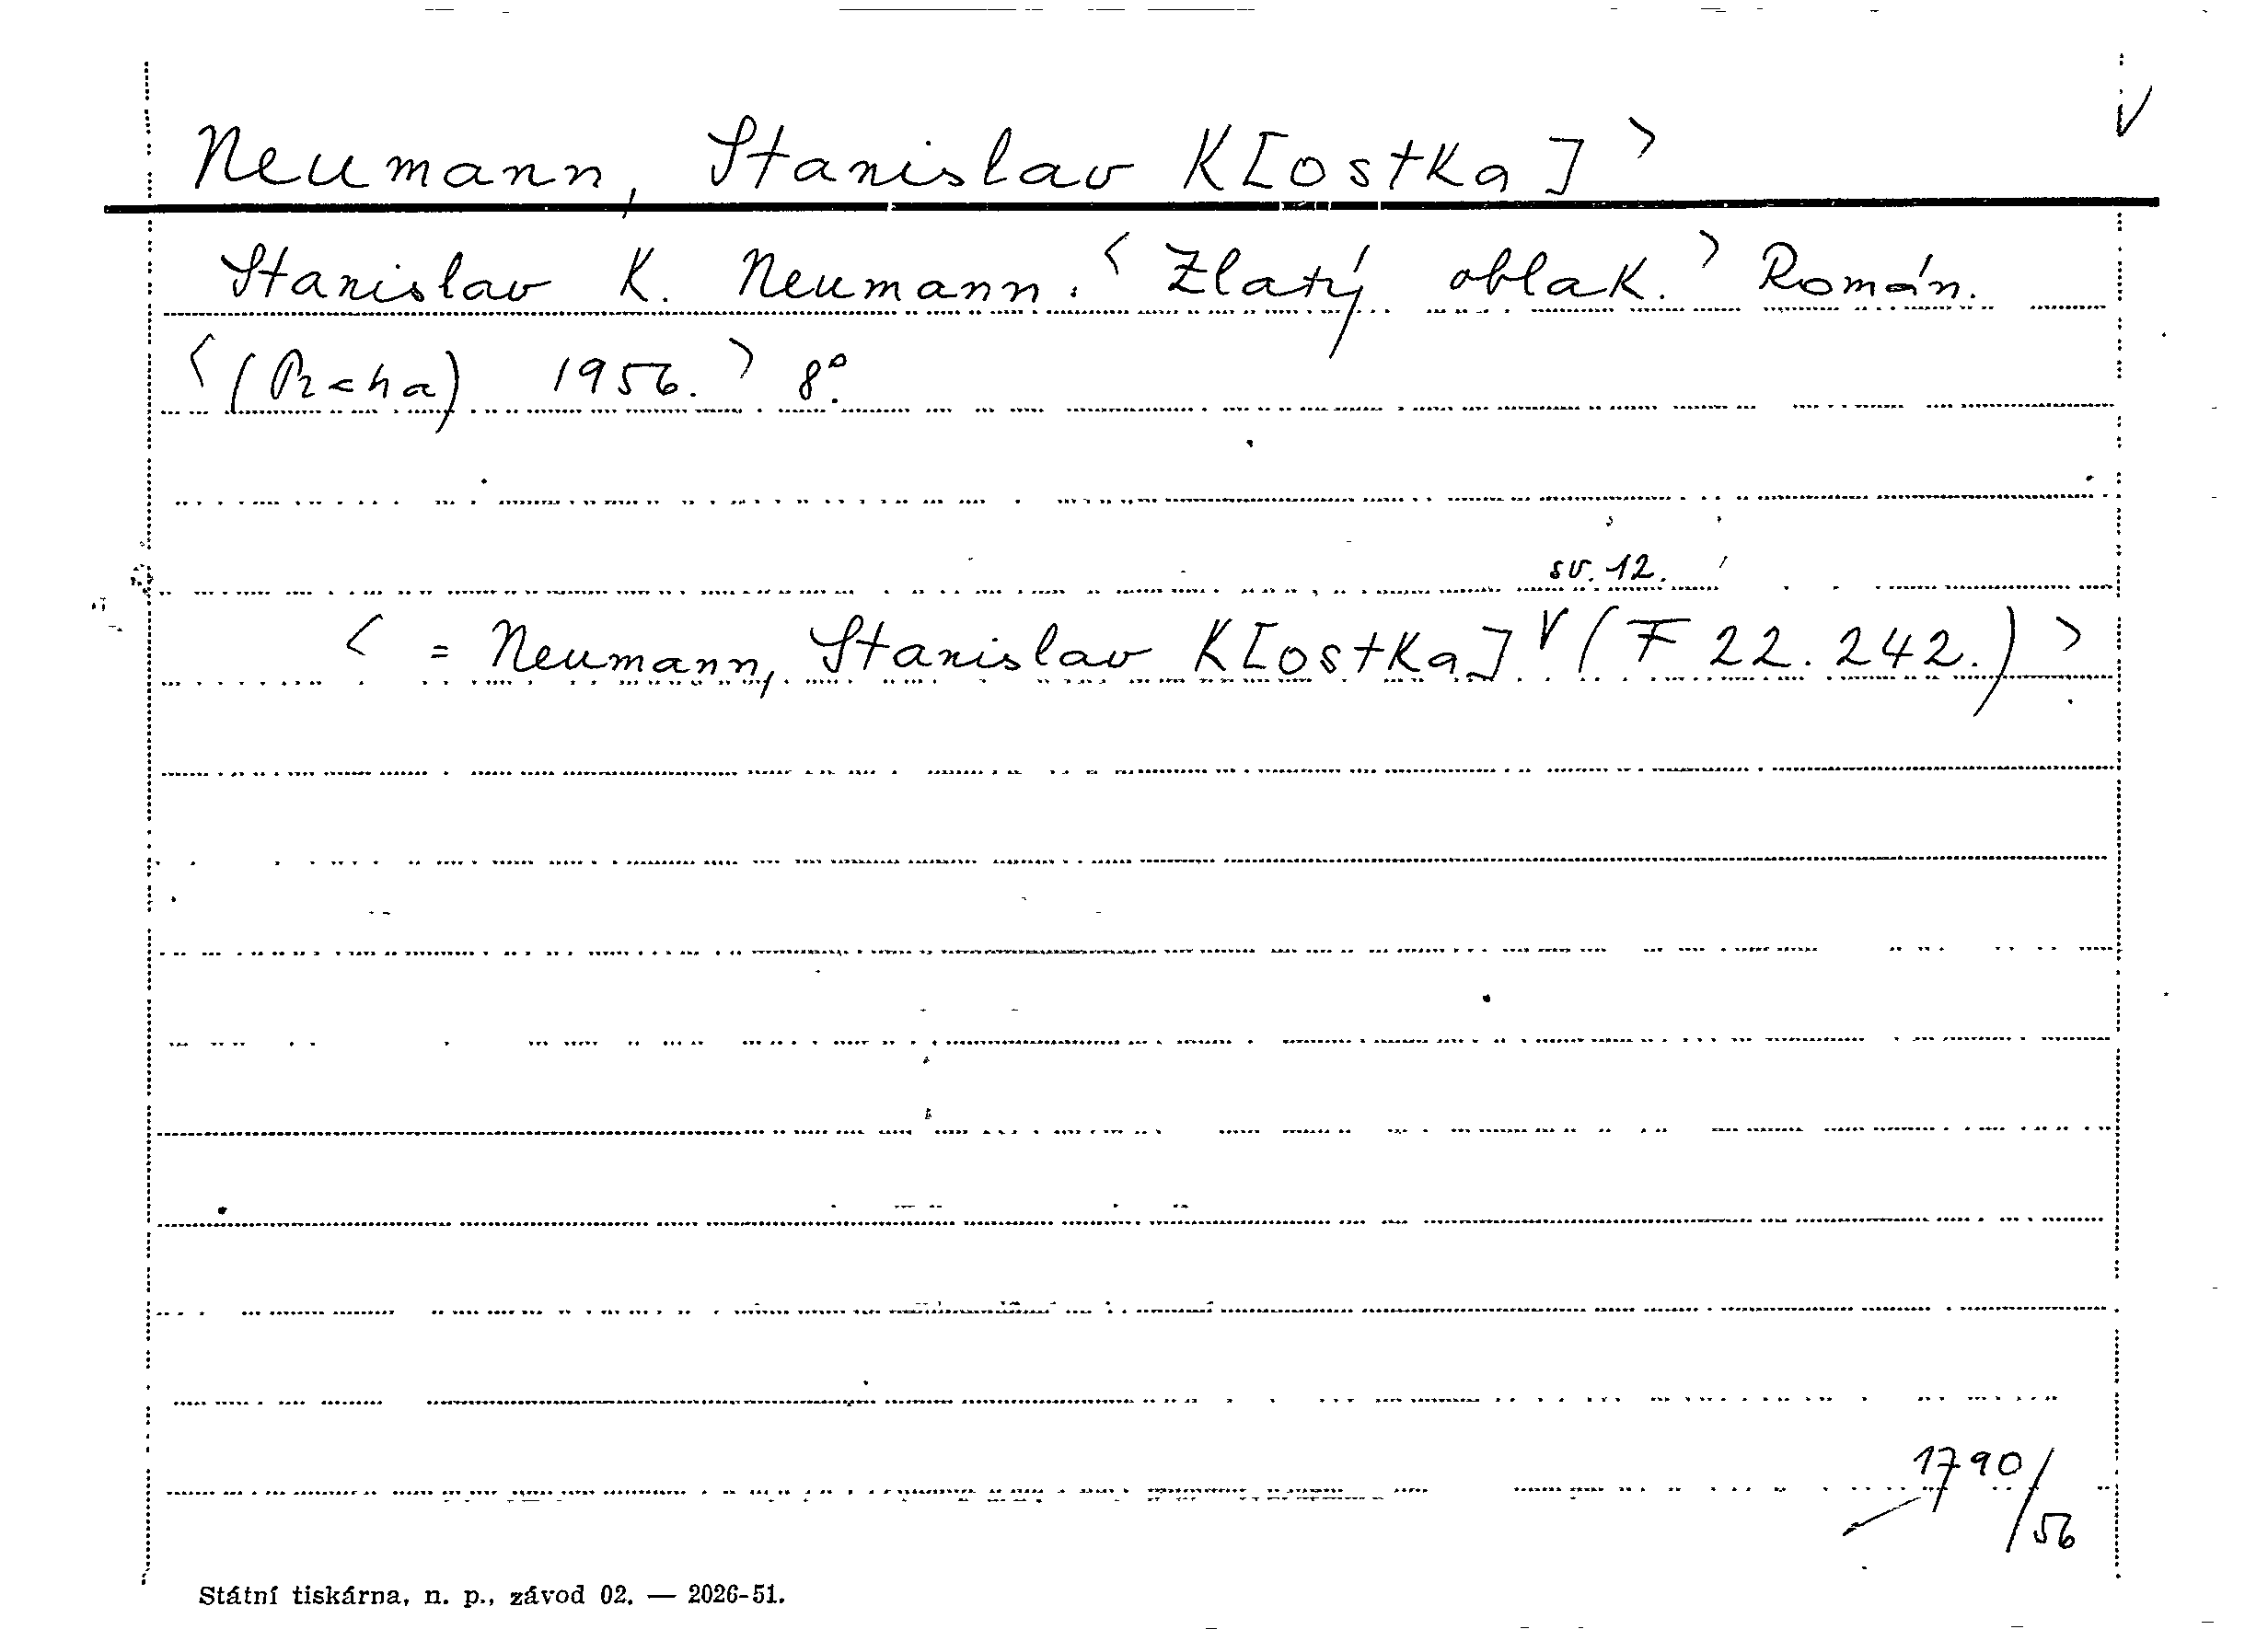 Neumann, Stanislav K[ostka] > V
Stanislav K. Neumann. < Zlatý oblak. > Román.
< (Praha) 1956. > 8°.
sv. 12.
< = Neumann, Stanislav K[ostka] V (F 22.242.) >
1790/56
Státní tiskárna, n. p., závod 02. — 2026-51.